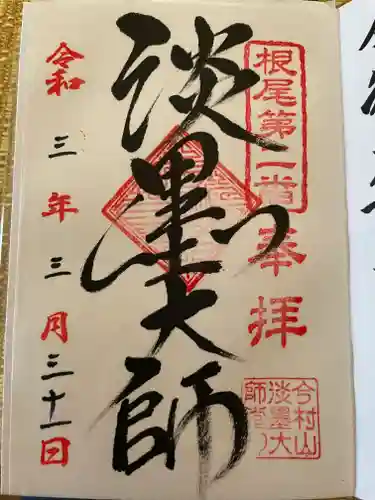 根尾第一番
奉拝
淡墨大師
令和三年三月三十一日
今村山
淡墨大
師堂